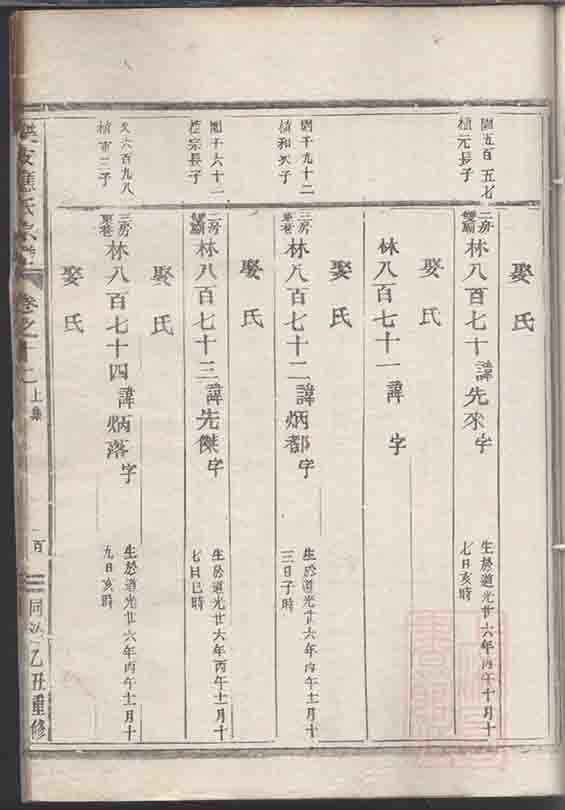 娶氏
閏五百五才
植元長子
二房
雙廟
林八百七十諱先來字
生於道光廿六年丙午十月十
七日亥時
娶氏
林八百七十一諱字
娶氏
閏千九十二
植和次子
三房
東巷
林八百七十二諱炳都字
生於道光廿六年丙午十一月十
三日子時
娶氏
閏千六十一
植宗長子
二房
雙廟
林八百七十三諱先傑字
生於道光廿六年丙午十一月十
七日巳時
娶氏
久六百九八
植市三子
三房
東巷
林八百七十四諱炳落字
生於道光廿六年丙午十一月十
九日亥時
娶氏
應氏宗譜
卷之十二上集
百
同治乙丑重修